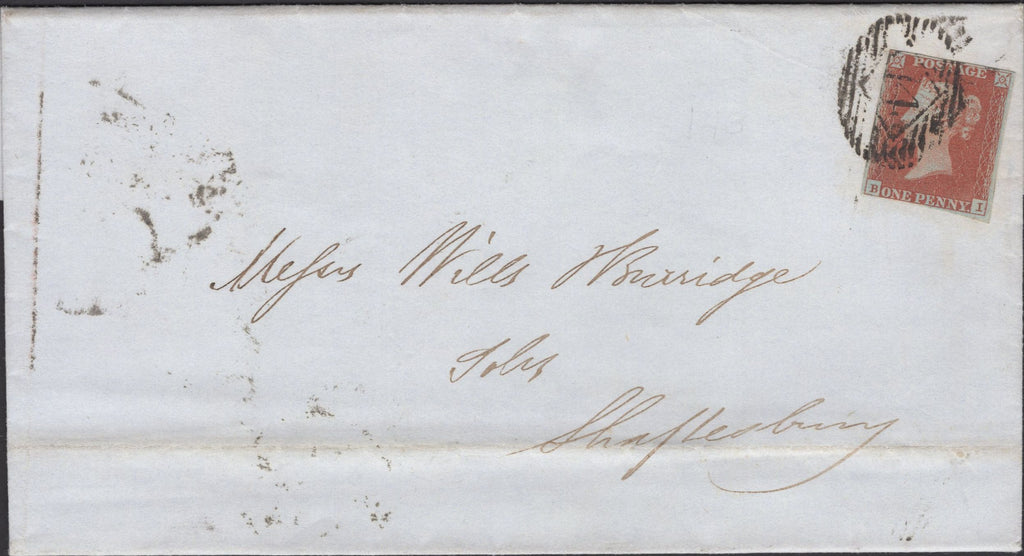 POSTAGE
B ONE PENNY. I
Messrs Wills & Burridge
Solrs
Shaftesbury